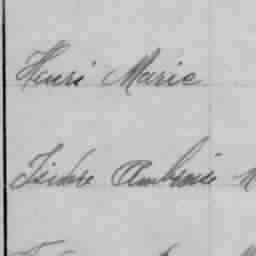 Henri Marie
Isidore Ambroise